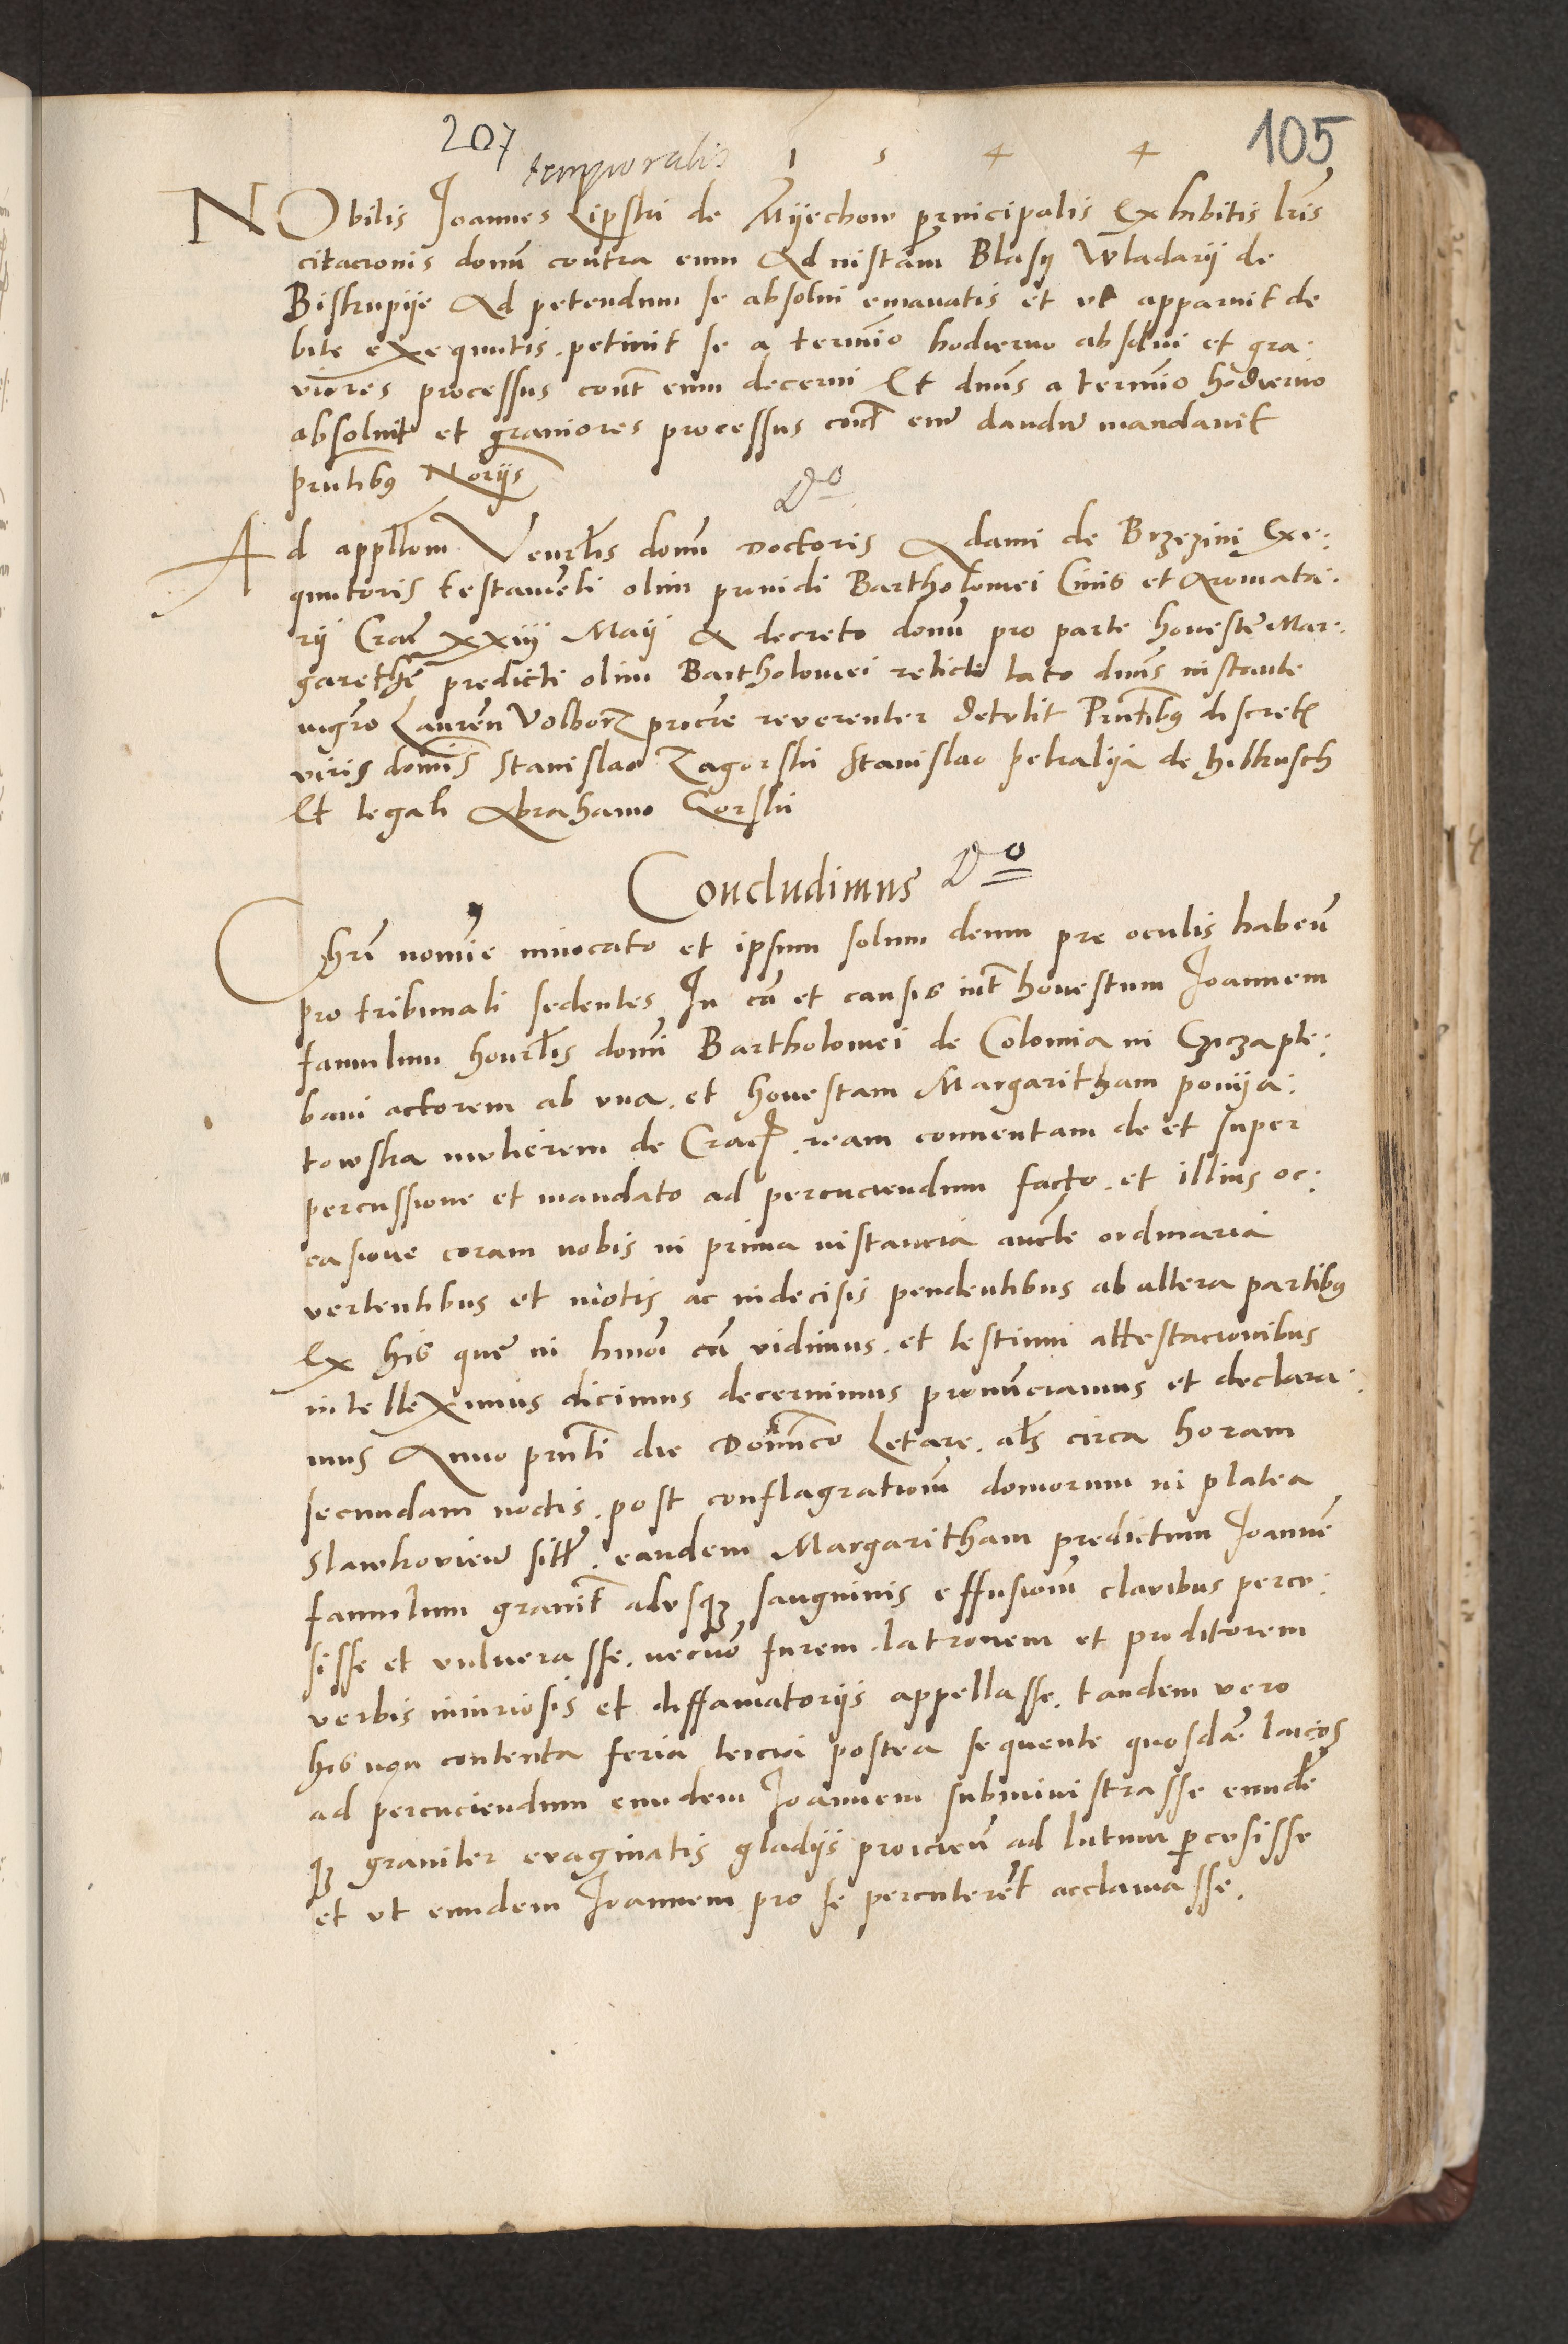 207 105
temporalis 1 5 4 4
NObilis Joannes Lipski de Mÿechow principalis Exhibitis lris
citacionis domi contra eum Ad instam Blasij Wladarij de
Biskupije Ad petendum se absolui emanatis et vt apparuit de
bite exequutis. petiuit se a termio hodierno absolui et gra:
viores processus cont eum decerni Et dnus a termio hodierno
absoluit et grauiores processus cont eum dandum mandauit
prntibus Norijs
Do
Ad appllom Venrlis domi Doctoris Adami de Brzezini Exe:
quutoris testamenti olim prouidi Bartholomei Ciuis et Aromata:
rij Crac xxiij Maij A decreto domi pro parte honeste Mar:
garethe predicti olim Bartholomei relicte lato dnus instante
mgro Lauren Volborz procre reuerenter detulit Prntibus discret
viris domis Stanislao Zagorski Stanislao petralija de hilkusch
Et legali Abrahamo Gorski
Concludimus Do
Chri nomie inuocato et ipsum solum deum pre oculis haben
pro tribunali sedentes In ca et causis int honestum Joannem
famulum honrlis domi Bartholomei de Colonia in Cziczaple:
bani actorem ab vna. et honestam Margaritham ponija:
towska mulierem de Crac. ream conuentam de et super
percussione et mandato ad percuciendum facto. et illius oc:
casione coram nobis in prima instancia aucte ordinaria
vertentibus et motis ac indecisis pendentibus ab altera partibus
Ex his que in hmoi ca vidimus. et testium attestacionibus
intelleximus dicimus decernimus pronunciamus et declara:
mus Anno prnti die Dominico Letare. als circa horam
secundam noctis. post conflagrationem domorum in platea
Slawkoview sitt. eandem Margaritham predictum Joanne
famulum grauit advsque sanguinis effusionem clauibus percu:
sisse et vulnerasse. necno furem. latronem et proditorem
verbis iniuriosis et diffamatorijs appellasse. tandem vero
his non contenta feria tercia postea sequente quosda laicos
ad percuciendum eundem Joannem subministrasse eunde
que grauiter evaginatis gladijs proicien ad lutum percusisse
et vt eundem Joannem pro se percuterent acclamasse.